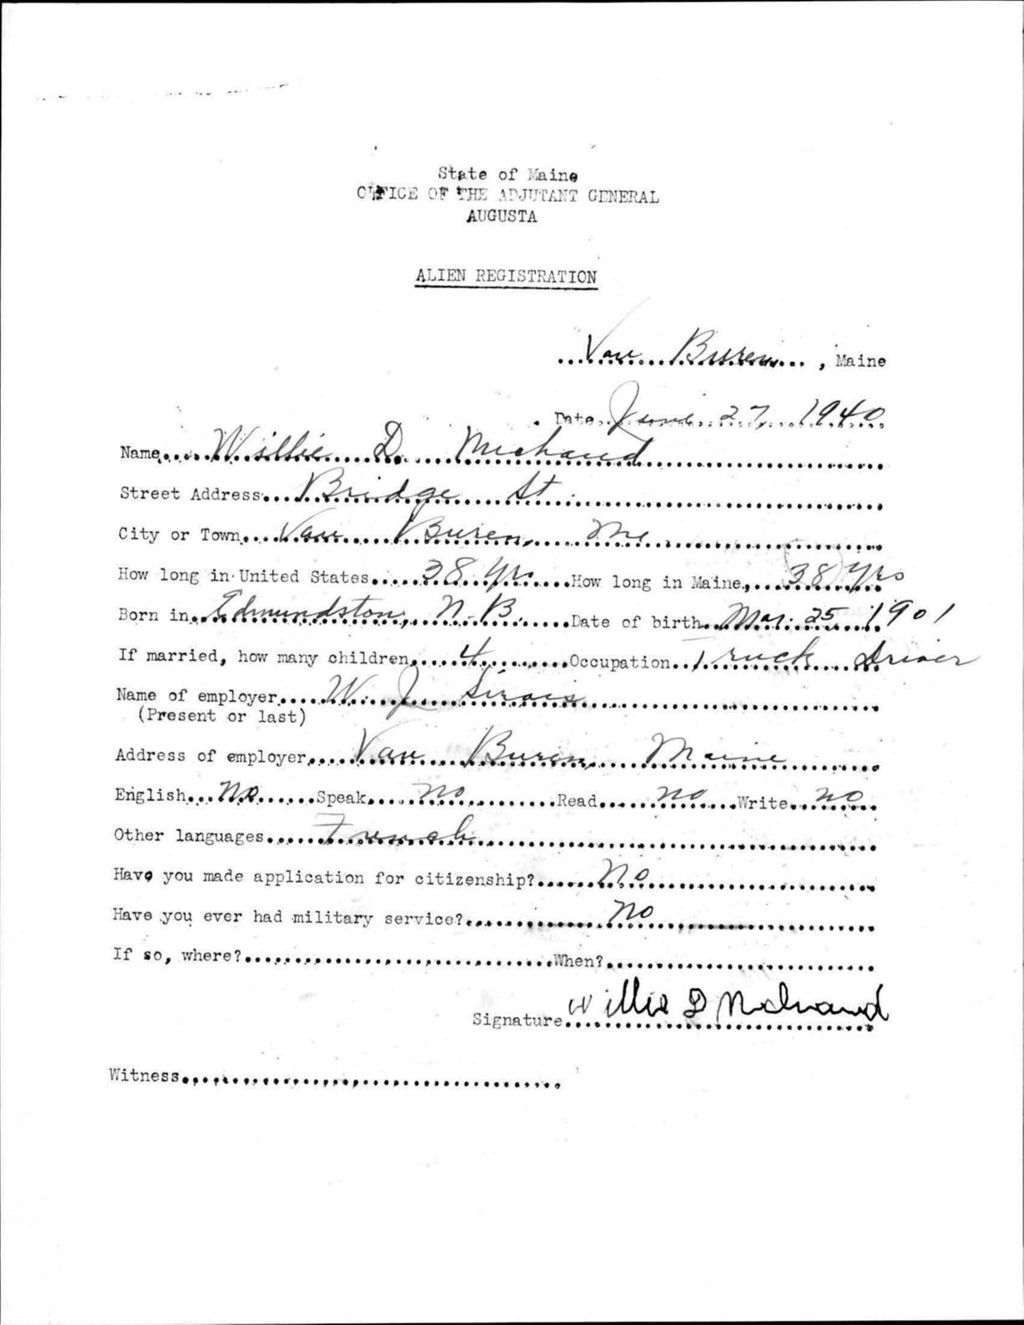 State of Maine
OFFICE OF THE ADJUTANT GENERAL
AUGUSTA
ALIEN REGISTRATION
Van Buren, Maine
Date June 27, 1940
Name Willie D. Michaud
Street Address Bridge St.
City or Town Van Buren, Me
How long in United States 38 Yrs. How long in Maine 38 Yrs
Born in Edmundston, N.B. Date of birth Mar. 25, 1901
If married, how many children 4 Occupation Truck Driver
Name of employer W. J. Sirois
(Present or last)
Address of employer Van Buren, Maine
English No Speak No Read no Write no
Other languages French
Have you made application for citizenship? No
Have you ever had military service? No
If so, where? When?
Signature Willie D Michaud
Witness